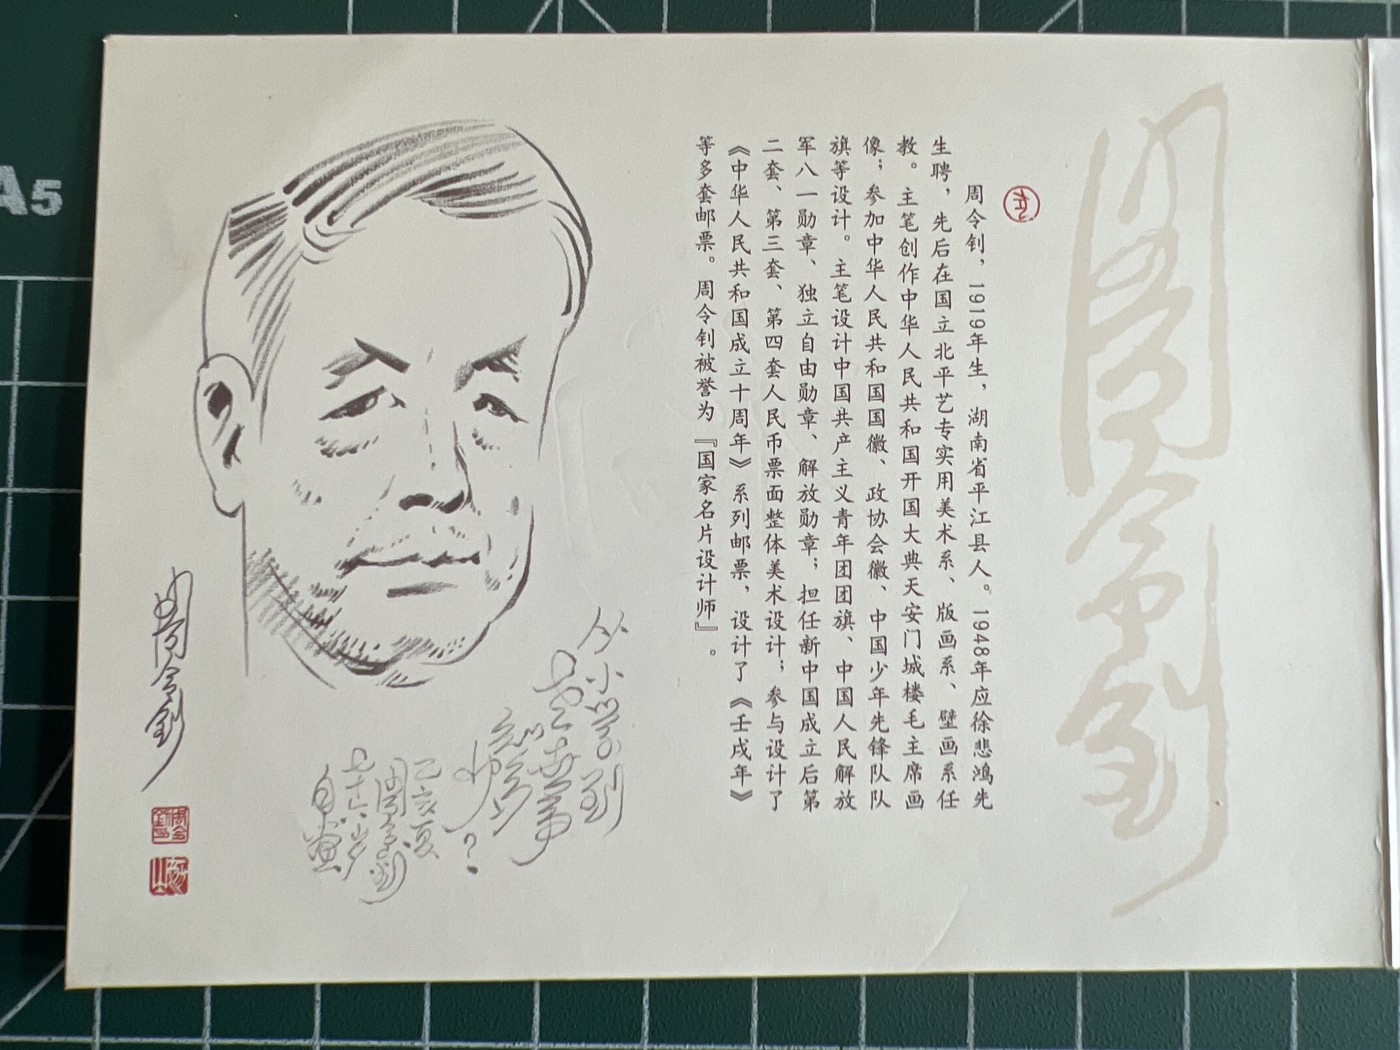 周令釗
周令钊，1919年生，湖南省平江县人。1948年应徐悲鸿先
生聘，先后在国立北平艺专实用美术系、版画系、壁画系任
教。主笔创作中华人民共和国开国大典天安门城楼毛主席画
像；参加中华人民共和国国徽、政协会徽、中国少年先锋队队
旗等设计。主笔设计中国共产主义青年团团旗、中国人民解放
军八一勋章、独立自由勋章、解放勋章；担任新中国成立后第
二套、第三套、第四套人民币票面整体美术设计；参与设计了
《中华人民共和国成立十周年》系列邮票，设计了《壬戌年》
等多套邮票。周令钊被誉为『国家名片设计师』。
从小学到
老世事
知多
少？
乙亥夏
周令釗
七十六岁
自画
周令釗
A5